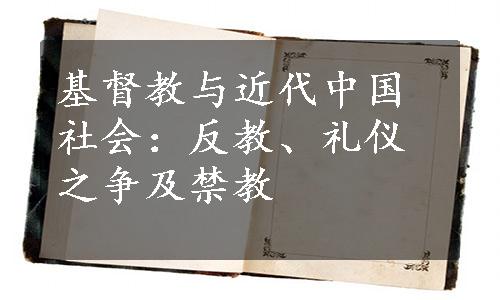 基督教与近代中国
社会：反教、礼仪
之争及禁教